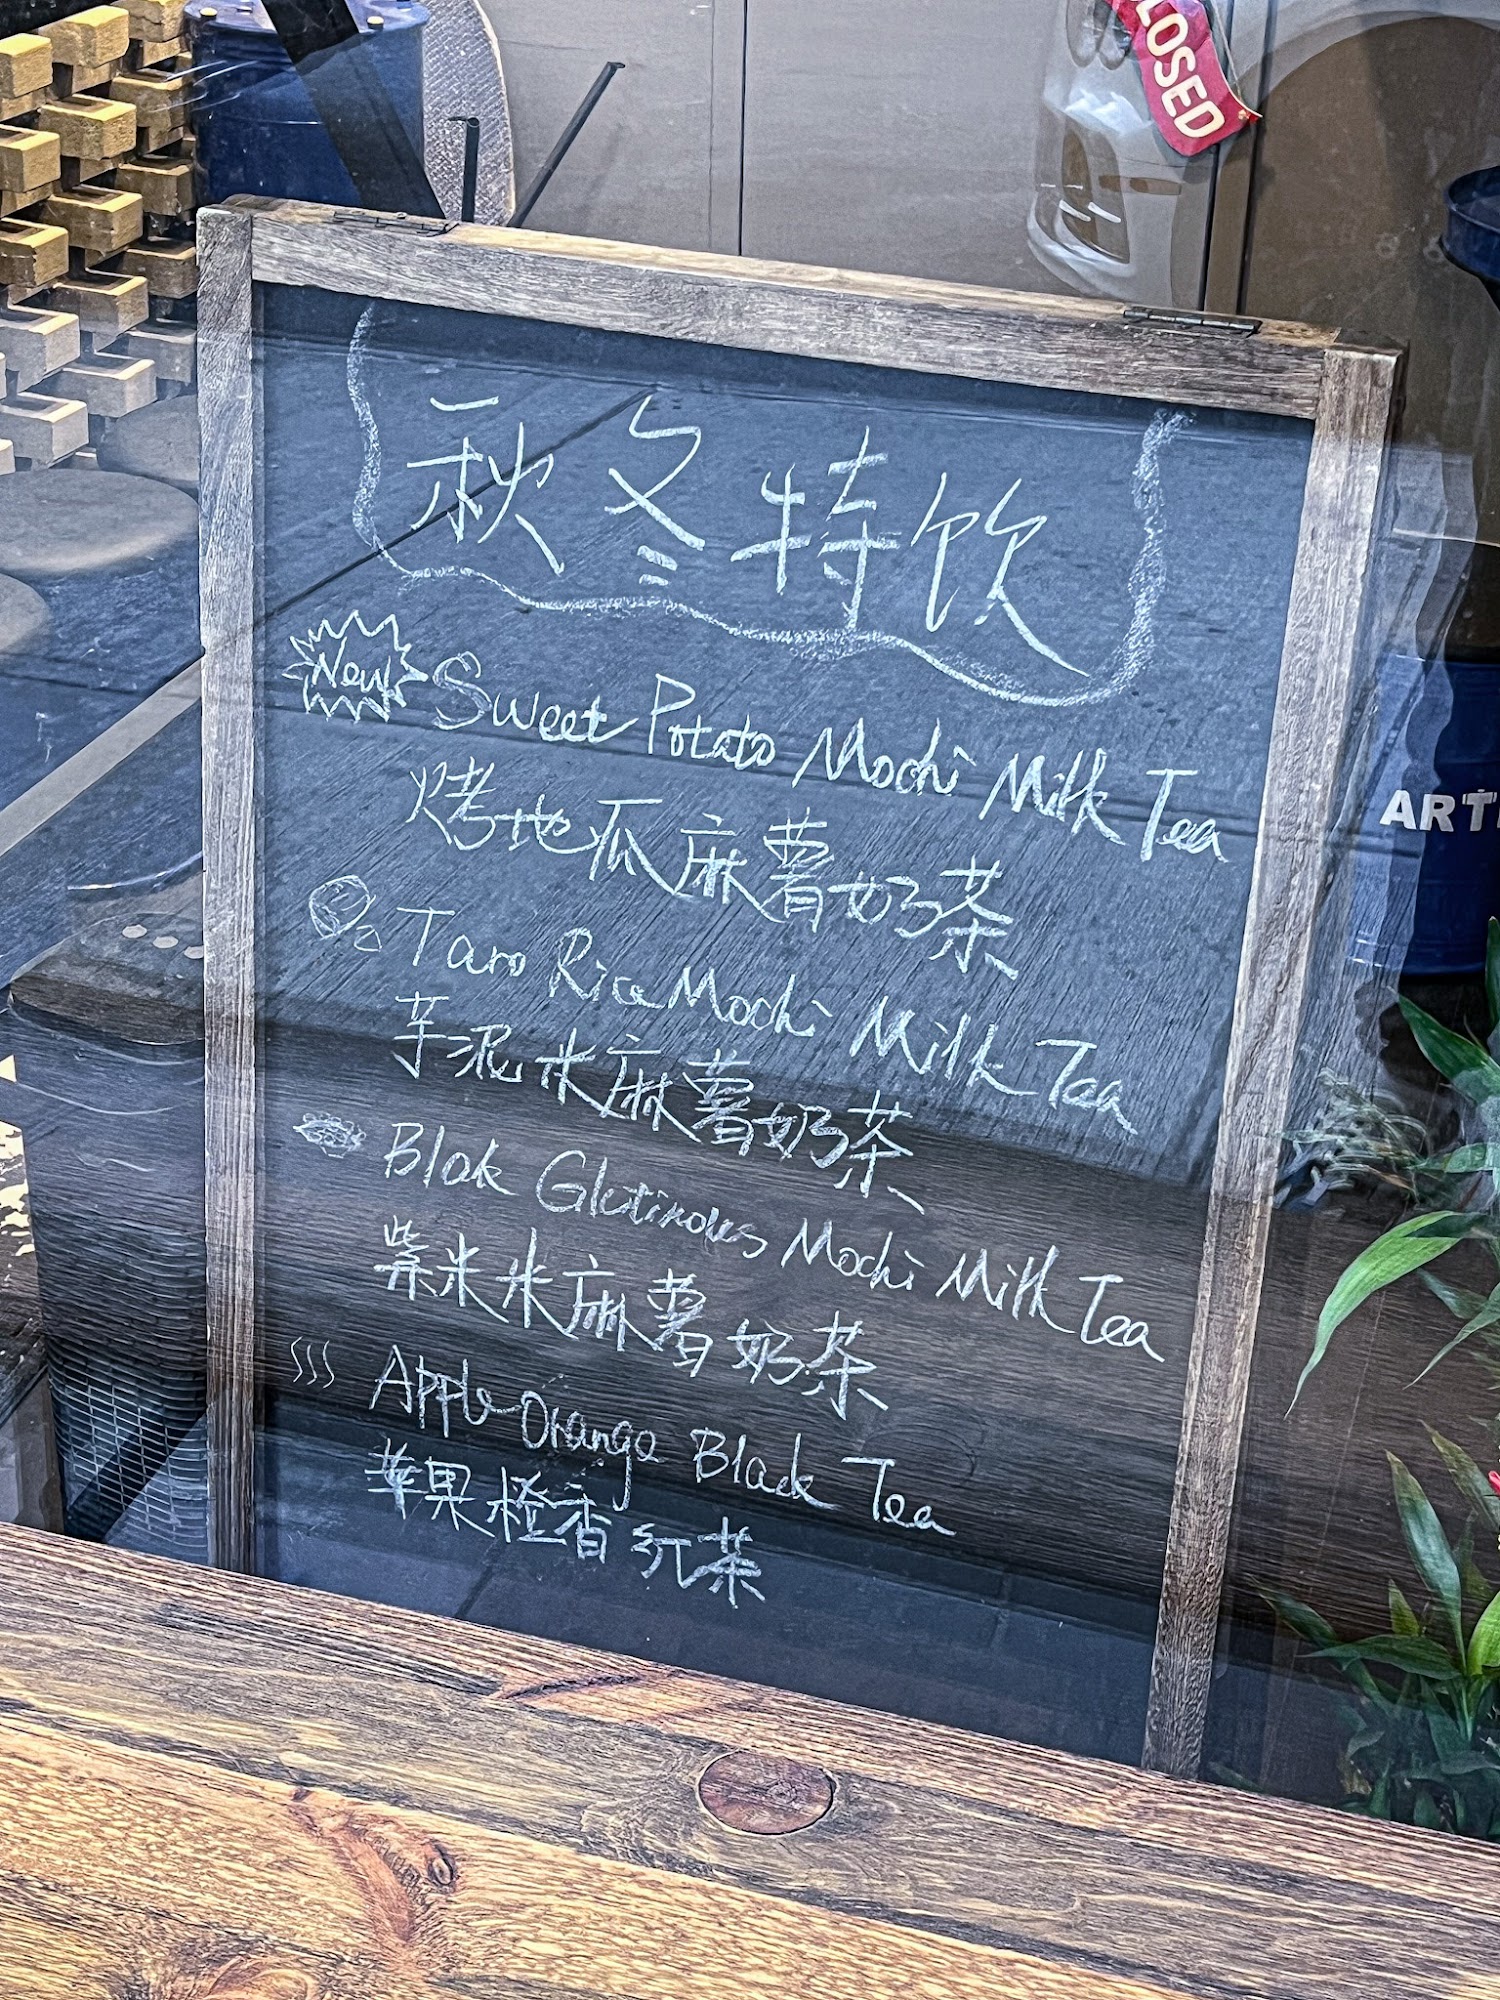 CLOSED
秋冬特饮
New
Sweet Potato Mochi Milk Tea
烤地瓜麻薯奶茶
Taro Rice Mochi Milk Tea
芋泥米麻薯奶茶
Blak Glutinous Mochi Milk Tea
紫米米麻薯奶茶
Apple Orange Black Tea
苹果橙香红茶
ART